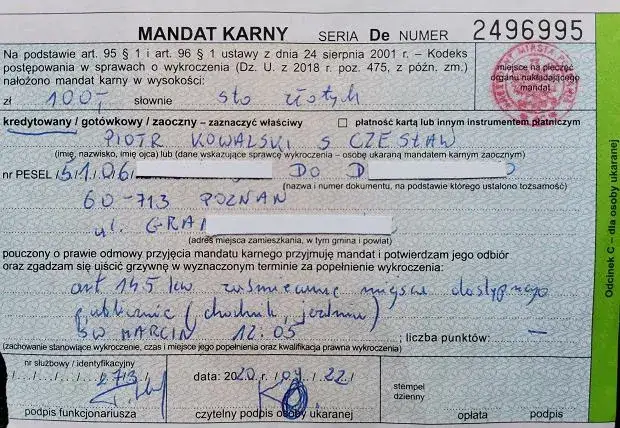 MANDAT KARNY SERIA De NUMER 2496995
Na podstawie art. 95 § 1 i art. 96 § 1 ustawy z dnia 24 sierpnia 2001 r. – Kodeks
postępowania w sprawach o wykroczenia (Dz. U. z 2018 r. poz. 475, z późn. zm.)
nałożono mandat karny w wysokości:
miejsce na pieczęć
organu nakładającego
mandat
zł 100,- słownie sto złotych
kredytowany / gotówkowy / zaoczny – zaznaczyć właściwy
płatność kartą lub innym instrumentem płatniczym
PIOTR KOWALSKI s CZESŁAW
(imię, nazwisko, imię ojca) lub (dane wskazujące sprawcę wykroczenia – osobę ukaraną mandatem karnym zaocznym)
nr PESEL /5/1/0/6/ DO D
(nazwa i numer dokumentu, na podstawie którego ustalono tożsamość)
60-713 POZNAŃ
ul. GRA
(adres miejsca zamieszkania, w tym gmina i powiat)
pouczony o prawie odmowy przyjęcia mandatu karnego przyjmuję mandat i potwierdzam jego odbiór
oraz zgadzam się uiścić grzywnę w wyznaczonym terminie za popełnienie wykroczenia:
art 145 kw zaśmiecanie miejsc dostępnego
publicznie (chodnik, jezdnia)
ŚW MARCIN 12:05 ; liczba punktów: —
(zachowanie stanowiące wykroczenie, czas i miejsce jego popełnienia oraz kwalifikacja prawna wykroczenia)
nr służbowy / identyfikacyjny
713
data: 2020 r. / 09 / 22 /
stempel
dzienny
podpis funkcjonariusza
czytelny podpis osoby ukaranej
opłata podpis
Odcinek C – dla osoby ukaranej